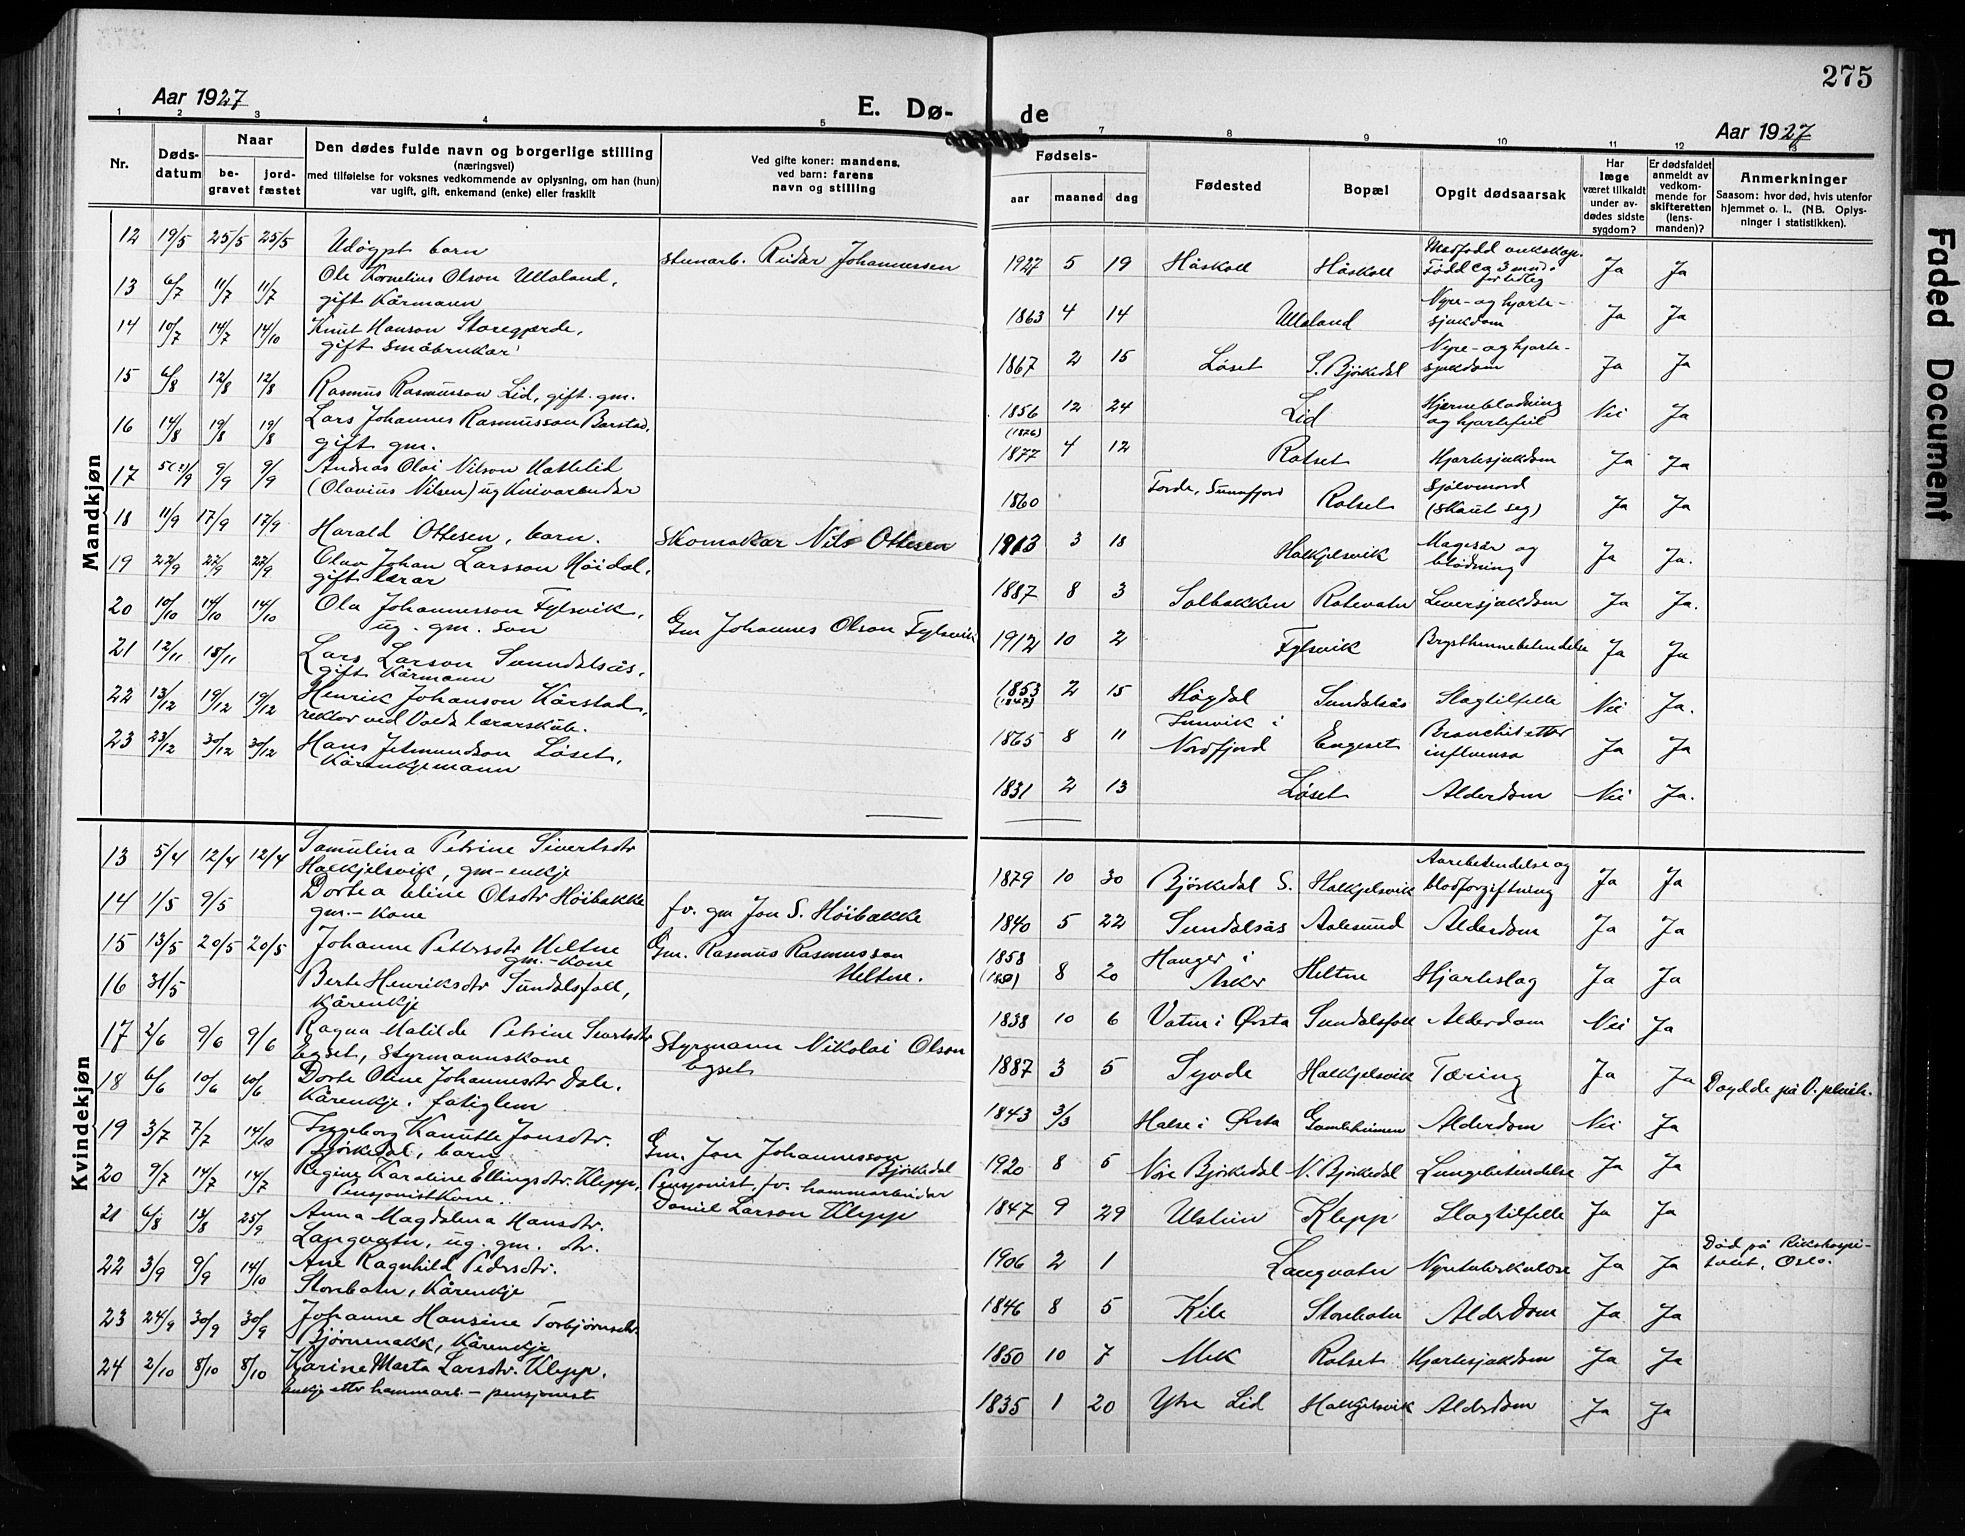 275
Aar 1927
E. Dø-
de
Aar 1927
1 2 3 4 5 7 8 9 10 11 12 13
Nr.
Døds-
datum
Naar
be-
gravet
jord-
fæstet
Den dødes fulde navn og borgerlige stilling
(næringsvei)
med tilføielse for voksnes vedkommende av oplysning, om han (hun)
var ugift, gift, enkemand (enke) eller fraskilt
Ved gifte koner: mandens,
ved barn: farens
navn og stilling
Fødsels-
aar
maaned
dag
Fødested
Bopæl
Opgit dødsaarsak
Har
læge
været tilkaldt
under av-
dødes sidste
sygdom?
Er dødsfaldet
anmeldt av
vedkom-
mende for
skifteretten
(lens-
manden)?
Anmerkninger
Saasom: hvor død, hvis utenfor
hjemmet o. l., (NB. Oplys-
ninger i statistikken).
Mandkjøn
12 19/5 25/5 25/5 Udøypt barn stenarb. Reidar Johannessen 1927 5 19 Håskoll Håskoll Født ca 3 mnd. Ja Ja
13 6/7 11/7 11/7 Ole Kornelius Olson Ullaland,
gift kårmann 1863 4 14 Ullaland Nyre- og hjarte-
sjukdom Ja Ja
14 10/7 14/7 14/10 Knut Hanson Storegjerde,
gift småbrukar 1867 2 15 Løset S. Bjørkedal Nyre- og hjarte-
sjukdom Ja Ja
15 6/8 12/8 12/8 Rasmus Rasmusson Lid, gift. gm. 1856 12 24 Lid Hjerneblødning
og hjartefeil Nei Ja
16 14/8 19/8 19/8 Lars Johannes Rasmusson Barstad,
gift gm. (1876)
1877 4 12 Rotset Hjartesjukdom Ja Ja
17 9/9 9/9 Andreas Olai Nilson Hattelid
(Olavius Nilsen) ug 1860 Førde, Sunnfjord Rotset Sjølvmord
(skaut seg) Ja Ja
18 11/9 17/9 17/9 Harald Ottesen, barn. Skomakar Nils Ottesen 1913 3 18 Halkjelsvik Magesår og
blødning Ja Ja.
19 22/9 27/9 27/9 Olav Johan Larsson Høidal,
gift lærar 1887 8 3 Solbakken Rotevatn Leversjukdom Ja Ja.
20 10/10 14/10 14/10 Ola Johannesson Fylsvik,
ug. gm. son Gm Johannes Olson Fylsvik 1912 10 2 Fylsvik Brysthinnebetendelse Ja Ja
21 12/11 18/11 Lars Larson Sunndalsås,
gift kårmann 1853
(1847) 2 15 Høydal Sundalsås Slagtilfelle Nei Ja.
22 13/12 19/12 19/12 Henrik Johanson Kårstad,
rektor ved Volda lærarskule. 1865 8 11 Nordfjord Engeset Bronchit etter
influensa Ja Ja
23 23/12 30/12 30/12 Hans Jetmundson Løset,
Kårenkjemann 1831 2 13 Løset Alderdom Nei Ja.
Kvindekjøn
13 5/4 12/4 12/4 Samulina Petrine Sivertsdtr
Halkjelsvik, gm-enkje 1879 10 30 Bjørkedal S. Halkjelsvik Aarebetendelse og
blodforgiftning Ja Ja
14 1/5 9/5 Dortea Eline Olsdtr Høibakke
gm.- kone fv. gm Jon S. Høibakke 1840 5 22 Sundalsås Aalesund Alderdom Ja Ja
15 13/5 20/5 20/5 Johanne Pettersdtr Heltne
gm.- kone Gm. Rasmus Rasmusson
Heltne. 1858 8 20 Hauger i
Asker Heltne Hjarteslag Ja Ja
16 31/5 Berte Henriksdtr Sundalsfoll,
kårenkje 1838 10 6 Vatne i Ørsta Sundalsfoll Alderdom Nei Ja
17 2/6 9/6 9/6 Ragna Matilde Petrine Sivertsdtr
Egset, styrmannskone Styrmann Nikolai Olson
Egset 1887 3 5 Syvde Halkjelsvik Tæring Ja Ja
18 6/6 10/6 10/6 Dorte Oline Johannesdtr Dale.
Kårenkje. fatiglem 1843 3/3 Halse i Ørsta Gamleheimen Alderdom Nei Ja Døydde på
19 3/7 7/7 14/10 Ingeborg Kanutte Jonsdtr.
Bjørkedal, barn Gm. Jon Johannesson
Bjørkedal 1920 8 5 Nore Bjørkedal N. Bjørkedal Lungebetendelse Ja Ja
20 9/7 14/7 14/7 Regine Karoline Ellingsdtr. Klepp,
Pensjonistkone. Pensjonist, fv. hammarbeidar
Daniel Larson Klepp 1847 9 29 Ulstein Klepp Slagtilfelle Ja Ja
21 6/8 13/8 25/9 Anna Magdalena Hansdtr.
Langvatn, ug. gm. dtr. 1906 2 1 Langvatn Nyretuberkulose Ja Ja Død på Rikshospi-
talet, Oslo.
22 3/9 9/9 14/10 Ane Ragnhild Pedersdtr.
Storebotn, Kårenkje 1846 8 5 Kile Storebotn Alderdom Ja Ja
23 24/9 30/9 30/9 Johanne Hansine Torbjørnsdtr.
Bjørnenakk, Kårenkje 1850 10 7 Mek Rotset Hjartesjukdom Ja Ja
24 2/10 8/10 8/10 Karine Marta Larsdtr. Klepp.
Enkje etter hammarb. - pensjonist 1835 1 20 Ytre Lid Halkjelsvik Alderdom Ja Ja
Faded Document